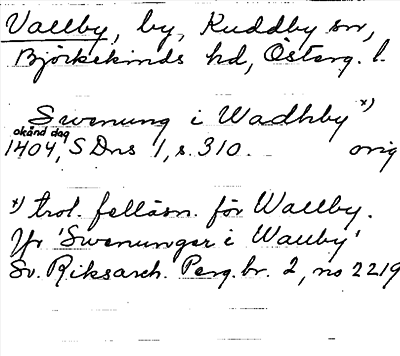 Vallby, by, Kuddby sn,
Björkekinds hd, Österg. l.
Swenung i Wadhby *)
okänd dag
1404, SDns 1, s. 310. orig
*) trol. felläsn. för Wallby.
Yr 'Swenunger i Wauby'
Sv. Riksarch. Perg. br. 2, no 2219